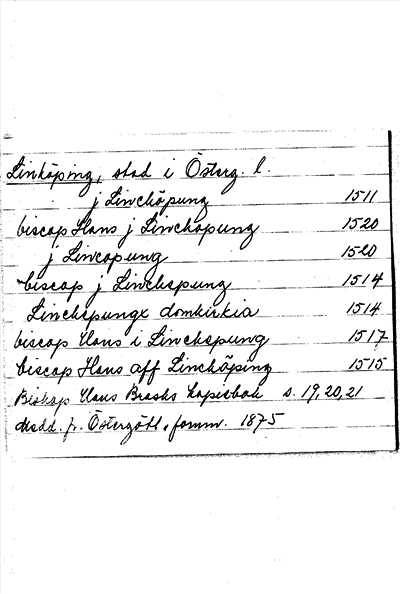 Linköping, stad i Österg. l.
j Linchöpung 1511
biscop Hans j Linchopung 1520
j Lincopung 1520
biscop j Linchopung 1514
Linchopungx domkirkia 1514
biscop Hans i Linchopung 1517
biscop Hans aff Linchöping 1515
Biskop Hans Brasks kopiebok s. 19, 20, 21
Medd. fr. Östergötl. fornm. 1875